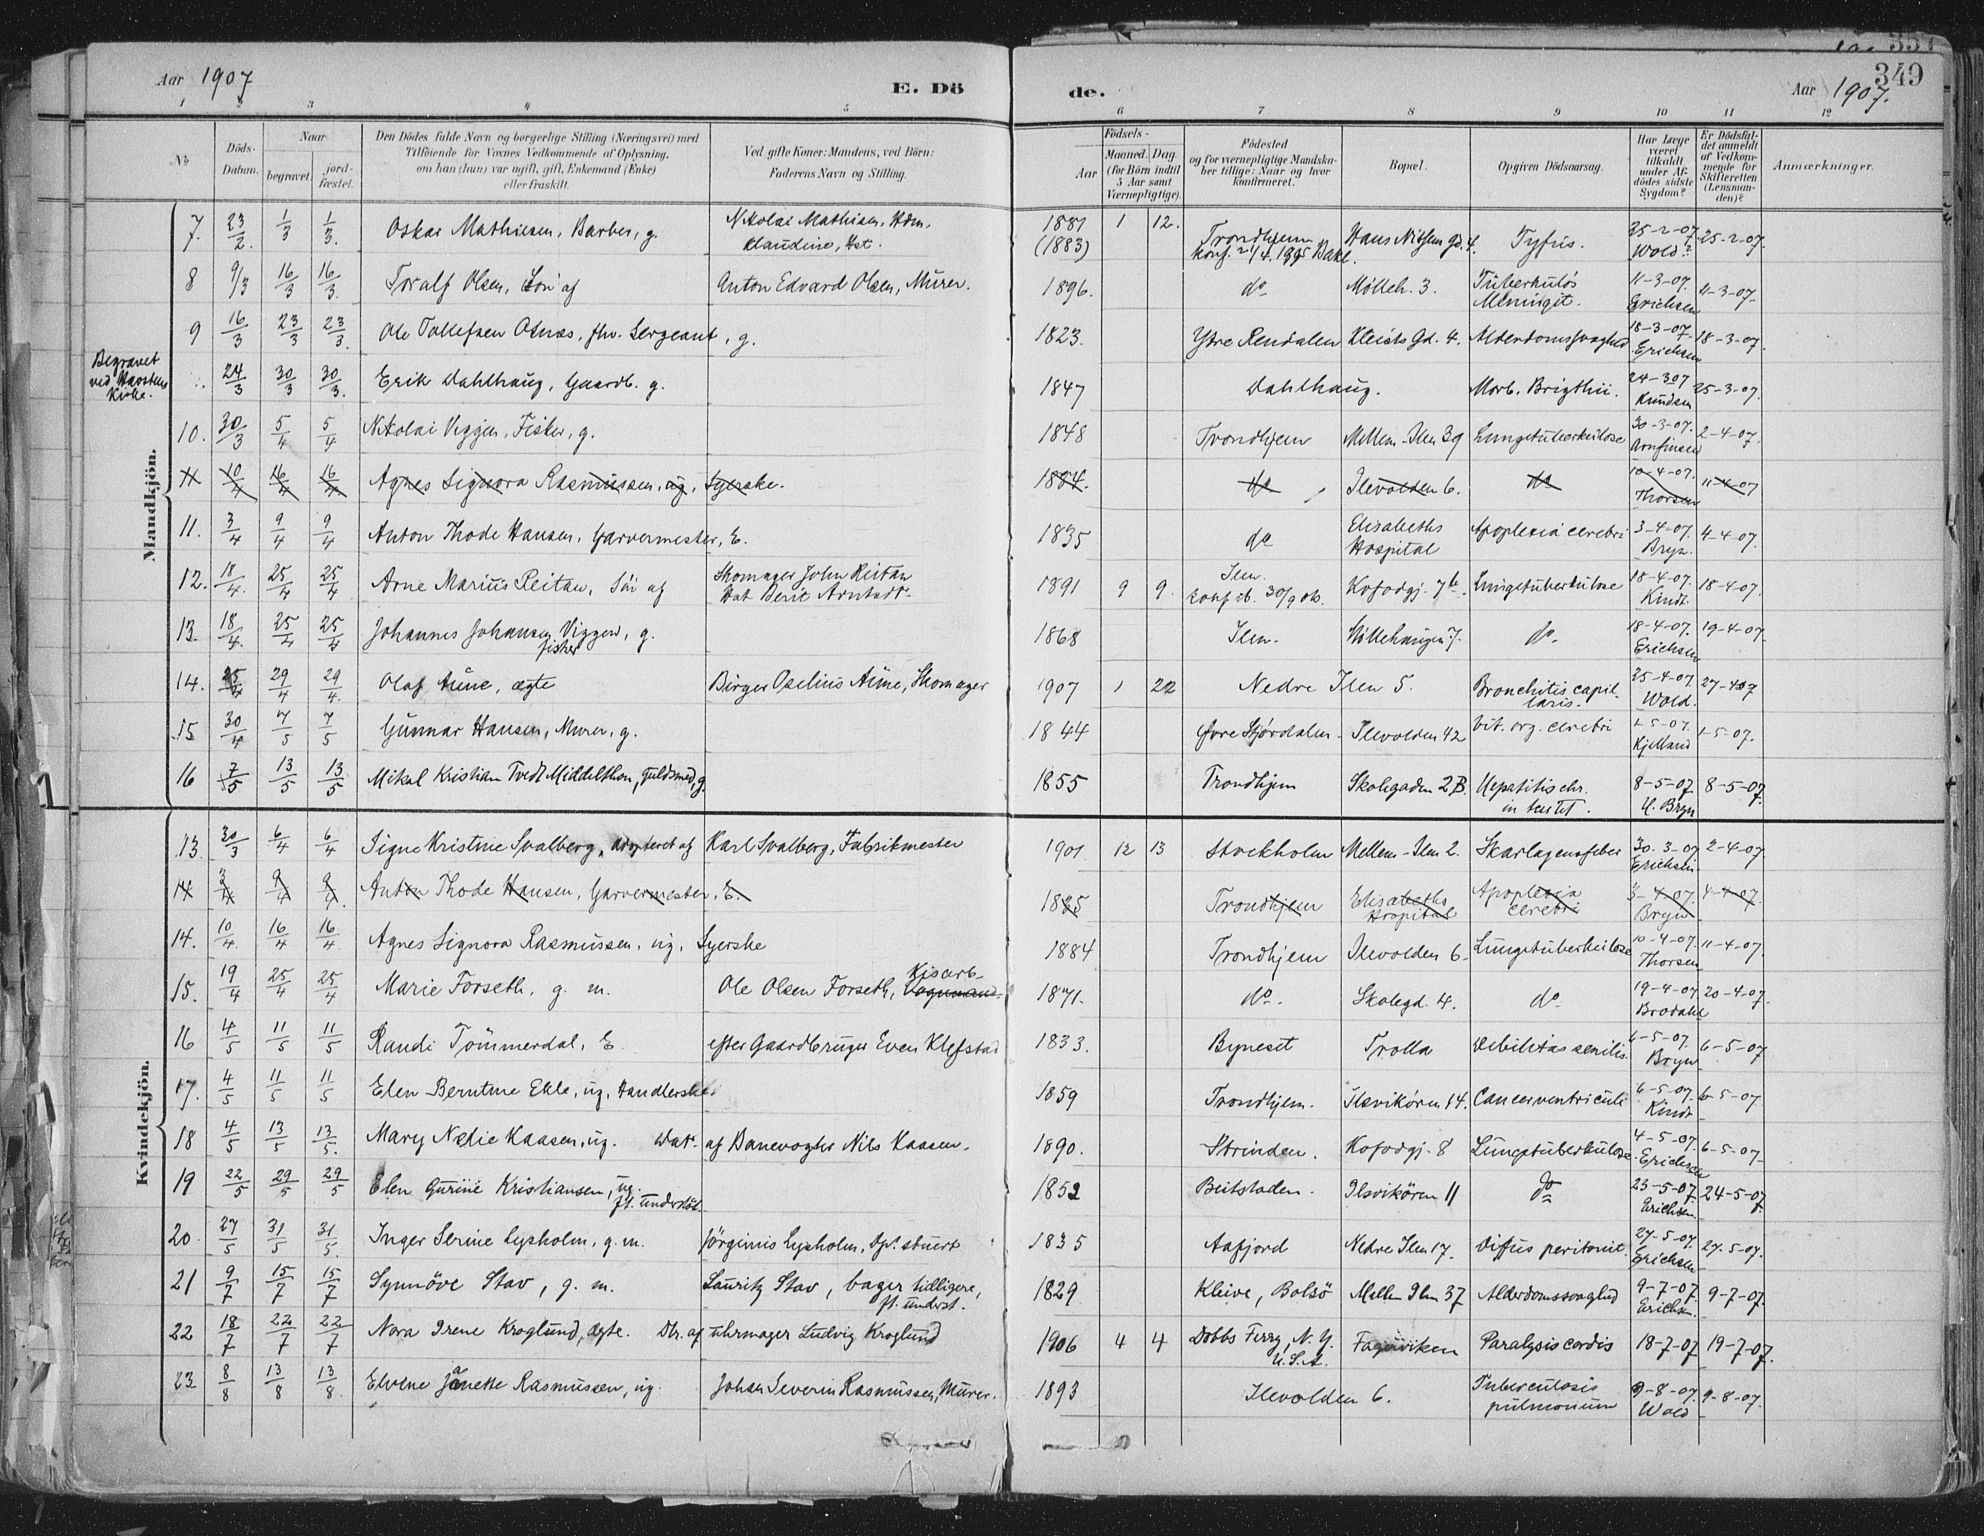 351
349
Aar 1907
E. Dö
de.
Aar 1907.
1 2 3 4 5 6 7 8 9 10 11 12
No
Döds-Datum.
Naar
begravet.
jord-fæstet.
Den Dödes fulde Navn og borgerlige Stilling (Næringsvei) med
Tilföiende for Voxnes Vedkommende af Oplysning,
om han (hun) var ugift, gift, Enkemand (Enke)
eller fraskilt.
Ved gifte Koner: Mandens, ved Börn:
Faderens Navn og Stilling.
Födsels-
Aar
Maaned. Dag
(for Börn indtil
5 Aar samt
Værnepligtige).
Födested
og for værnepligtige Mandska-
ber tillige: Naar og hvor
konfirmeret.
Bopæl.
Opgiven Dödsaarsag.
Har Læge
været
tilkaldt
under Af-
dödes sidste
Sygdom?
Er Dödsfal-
det anmeldt
af Vedkom-
mende for
Skifteretten
(Lensman-
den)?
Anmærkninger.
Mandkjön.
7. 23/2 1/3 1/3. Oskar Mathiesen, Barber, g. Nikolai Mathisen, 1887 1 12. Trondhjem Hans Nissens Gd. 4. Tyfus. 25-2-07. 25-2-07.
Klaudine, (1883) konf. Bakl. Wold
8 9/3 16/3 16/3. Toralf Olsen, Sön af Anton Edvard Olsen, Murer. 1896. do Mölleb. 3. Tuberkulös 11-3-07. 11-3-07
Meningit. Erichsen
9 16/3 23/3 23/3. Ole Tollefsen Osnæs, fhv. Sergeant, g. 1823. Ytre Rendalen Kleists Gd. 4. Alderdomssvaghed 18-3-07. 18-3-07.
Erichsen
Begravet
ved
Kirke.
24/3 30/3 30/3. Erik Dahlhaug, Gaardb. g. 1847 Dahlhaug. Morb. Brigthii. 24-3-07 25-3-07.
Knudsen
10. 30/3 5/4 5/4 Nikolai Viggen, Fisker, g. 1848 Trondhjem Mellem-Ilen 39 Lungetuberkulose 30-3-07. 2-4-07.
Arnfinsen
11 10/4 16/4 16/4 Agnes Signora Rasmussen, ug, Syerske. 1884. do Ilevolden 6. do 10-4-07. 11-4-07
Thorsen
11. 3/4 9/4 9/4 Anton Thode Hansen, Garvermester, E. 1835 do Elisabeths Apoplexia cerebri 3-4-07. 4-4-07.
Hospital Bryn.
12. 18/4. 25/4 25/4 Arne Marius Reitan, Sön af Skomager John Reitan 1891 9 9. Ilen. Kofodgj. 7b. Lungetuberkulose 18-4-07. 18-4-07.
Berit konf. Kindt.
13. 18/4. 25/4 25/4 Johannes Johansen Viggen, g. 1868 Ilen. Möllebakgen 7. do. 18-4-07. 19-4-07.
fisker Erichsen
14. 25/4 29/4 29/4. Olaf Aune, ægte Birger Oselius Aune, Skomager 1907 1 22 Nedre Ilen 5. Bronchitis capil- 25-4-07. 27-4-07
laris. Wold.
15 30/4 7/5 7/5 Gunnar Hansen, Murer, g. 1844 Övre Stjördalen. Ilevolden 42 Vit. org. cerebri 1-5-07. 1-5-07.
Kjelland
16 7/5 13/5 13/5 Mikal Kristian Tvedt Middelthon, Guldsmed, g. 1855 Trondhjem Skolegaden 2B. Hepatitis chr. 8-5-07. 8-5-07.
H. Bryn
Kvindekjön.
13. 30/3 6/4 6/4 Signe Kristine Svalberg, adopteret af Karl Svalberg, Fabrikmester 1901 12 13 Stockholm Mellem-Ilen 2. Skarlagensfeber 30-3-07 2-4-07.
Erichsen
14 3/4 9/4 9/4 Anton Thode Hansen, Garvermester, E. 1835 Trondhjem Elisabeths Apoplexia 3-4-07. 4-4-07.
Hospital cerebri Bryn
14. 10/4. 16/4 16/4. Agnes Signora Rasmussen, ug, Syerske 1884 Trondhjem Ilevolden 6. Lungetuberkulose 10-4-07. 11-4-07.
Thorsen
15. 19/4 25/4 25/4 Marie Forseth, g. m. Ole Olsen Forseth, Vognmand. 1871. do. Skolegd. 4. do. 19-4-07. 20-4-07.
Brodahl
16 4/5 11/5 11/5 Randi Tömmerdal, E. efter Gaardbruger Even Klefstad 1833. Byneset Trolla Debilitas senilis. 6-5-07. 6-5-07.
Bryn
17. 4/5 11/5 11/5 Elen Berntine Ekle, ug, Handlerske. 1859 Trondhjem. Ilsvikören 14. Cancer ventriculi 6-5-07. 6-5-07
Kindt
18 4/5 13/5 13/5. Mary Nelie Kaasen, ug. Dat. af Banevogter Nils Kaasen. 1890. Strinden. Kofodgj. 8 Lungetuberkulose. 4-5-07. 6-5-07
Erichsen
19 22/5 29/5 29/5 Elen Gurine Kristiansen, ug. 1852 Beitstaden. Ilsvikören 11 do 23-5-07. 24-5-07.
ft. understöt. Erichsen
20. 27/5 31/5 31/5. Inger Serine Lysholm, g. m. Jörginus Lysholm, 1835 Aafjord Nedre Ilen 17. Difus peritonit. 27-5-07. 27-5-07.
Erichsen
21 9/7 15/7 15/7 Synnöve Stav, g. m. Lauritz Stav, bager tidligere, 1829 Kleive, Bolsö Mellm Ilen 37 Alderdomssvaghed 9-7-07. 9-7-07.
ft. underst. Erichsen
22 18/7 22/7 22/7 Nora Irene Kroglund, ægte. Dtr. af uhrmager Ludvig Kroglund 1906 4 4 Dobbs Ferry, N. Y. Fagerviken Paralysis cordis 18-7-07. 19-7-07.
U.S.A.
23 8/8 13/8 13/8. Elvine Janette Rasmussen, ug. Johan Severin Rasmussen, Murer. 1893 Ilevolden 6. Tuberculosis 9-8-07. 9-8-07.
pulmonum Wold